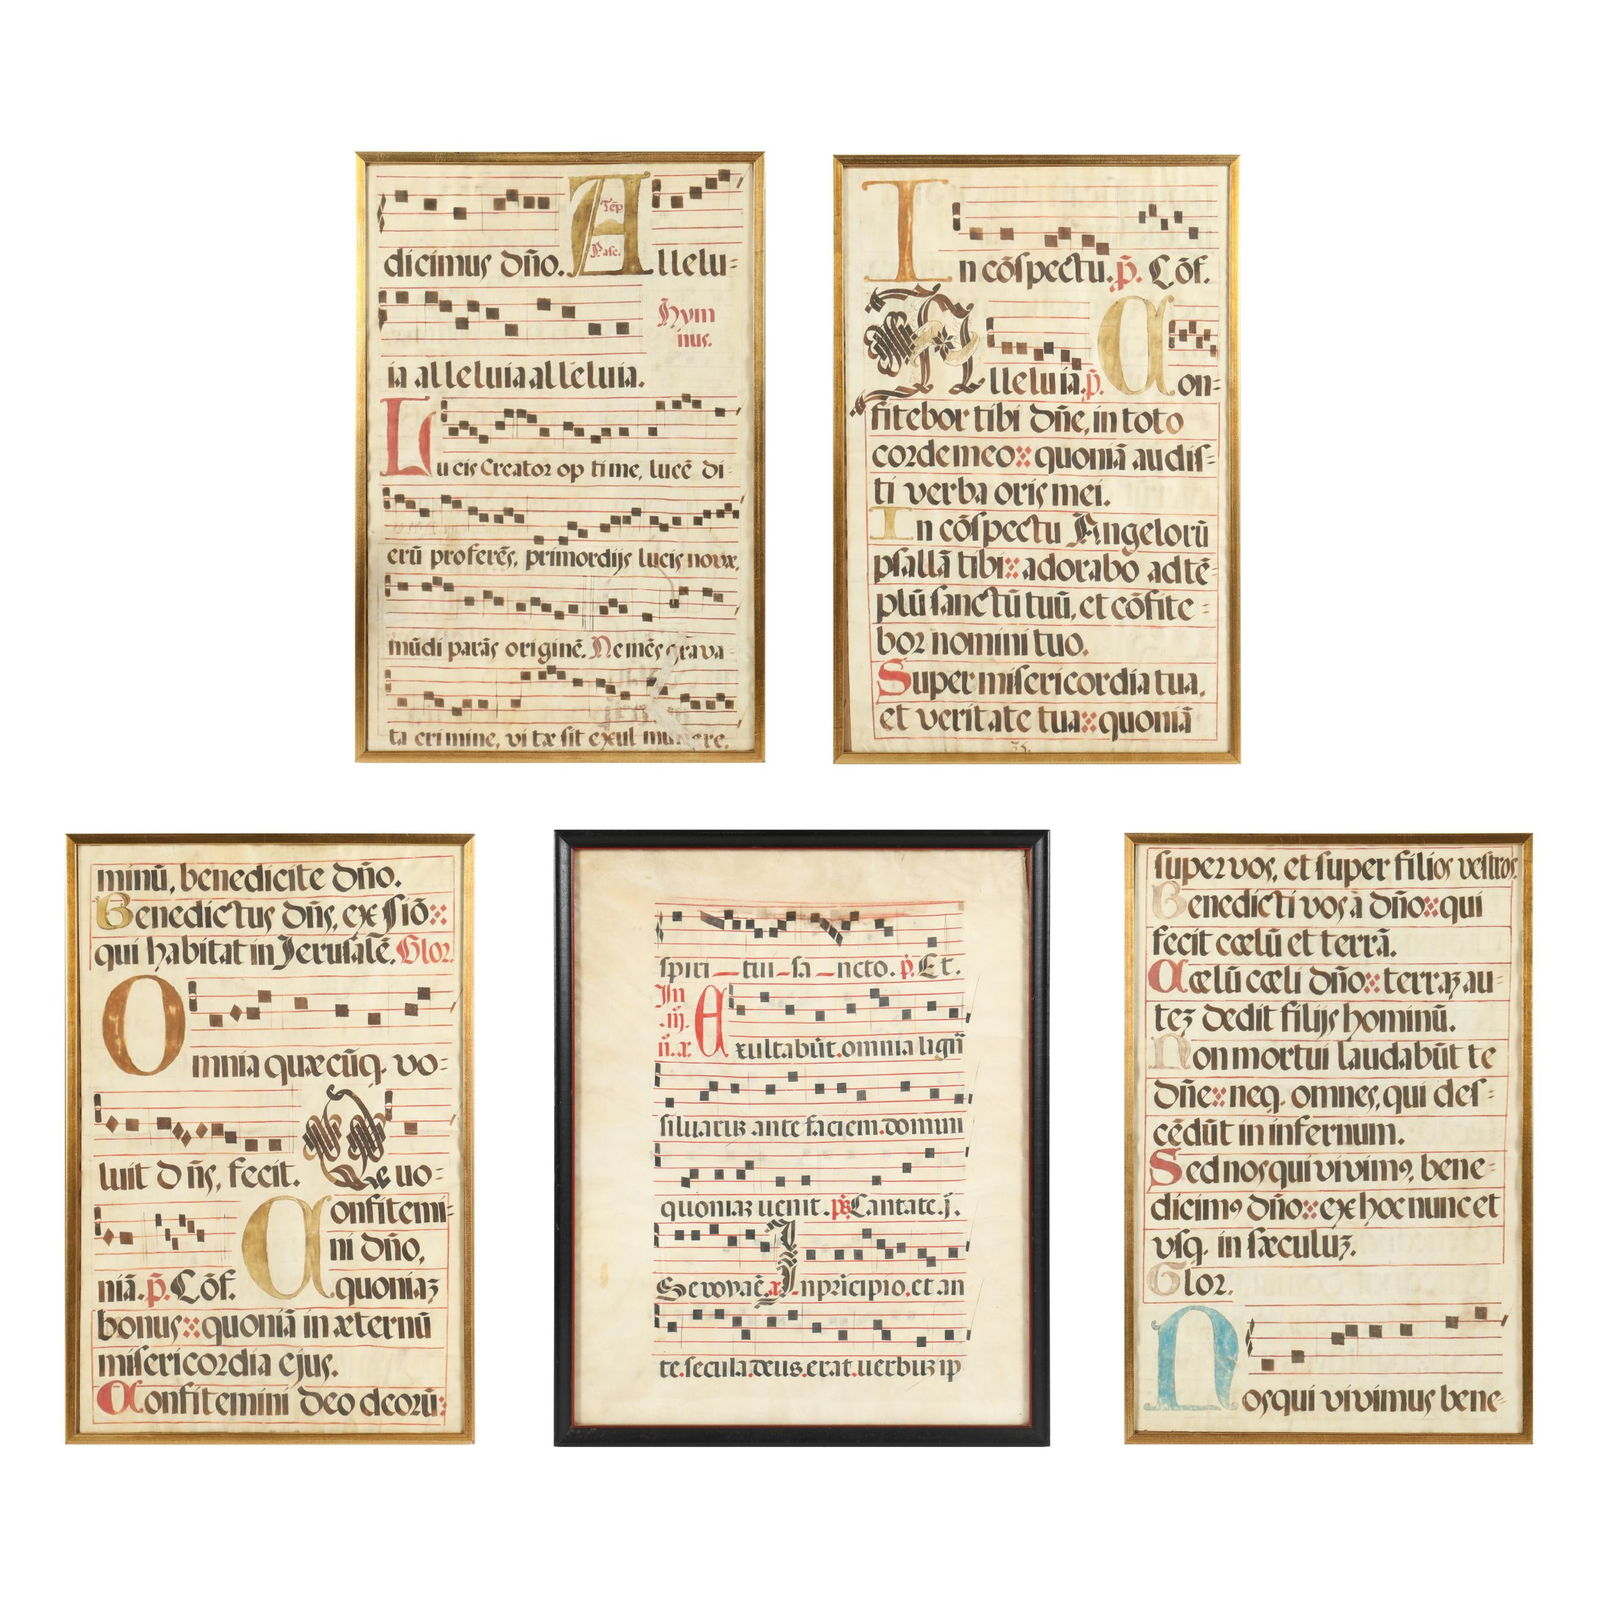 dicimus dño. Allelu=
Tẽp
Pasc.
ia alleluia alleluia.
Hym
nus.
Lucis Creator optime, lucẽ di-
erũ proferẽs, primordijs lucis novæ,
mũdi parãs originẽ. Ne mẽs grava-
ta crimine, vitæ sit exul munere.
In cõspectu. p̃. Cõf.
Alleluia. p̃. Con=
fitebor tibi dñe, in toto
corde meo: quoniã audis=
ti verba oris mei.
In cõspectu Angelorũ
psallã tibi: adorabo ad tẽ=
plũ sanctũ tuũ, et cõfite=
bor nomini tuo.
Super misericordia tua,
et veritate tua: quoniã
minũ, benedicite dño.
Benedictus dñs, ex Siõ:
qui habitat in Jerusalẽ. Glor.
Omnia quæcũq. vo=
luit dñs, fecit. Quo=
niã. p̃. Cõf.
Confitemi=
ni dño,
quoniaz
bonus: quoniã in æternũ
misericordia ejus.
Confitemini Deo deorũ:
spiri_tui_sa_ncto. p̃. Et.
In
.iij.
n. x.
Exultabũt. omnia ligñ
siluaruz ante faciem. domini
quoniaz uenit. ps. Cantate. j.
Seuouaẽ. x. In pricipio. et an
te. secula. deus. erat. uerbuz ip
super vos, et super filios vestros.
Benedicti vos a dño: qui
fecit cælũ et terrã.
Cælũ cæli dño: terraz au=
tez dedit filijs hominũ.
Non mortui laudabũt te
dñe: neq. omnes, qui des=
cẽdũt in infernum.
Sed nos qui vivim9, bene=
dicim9 dño: ex hoc nunc et
vsq. in sæculuz.
Glor.
Nos qui vivimus bene=